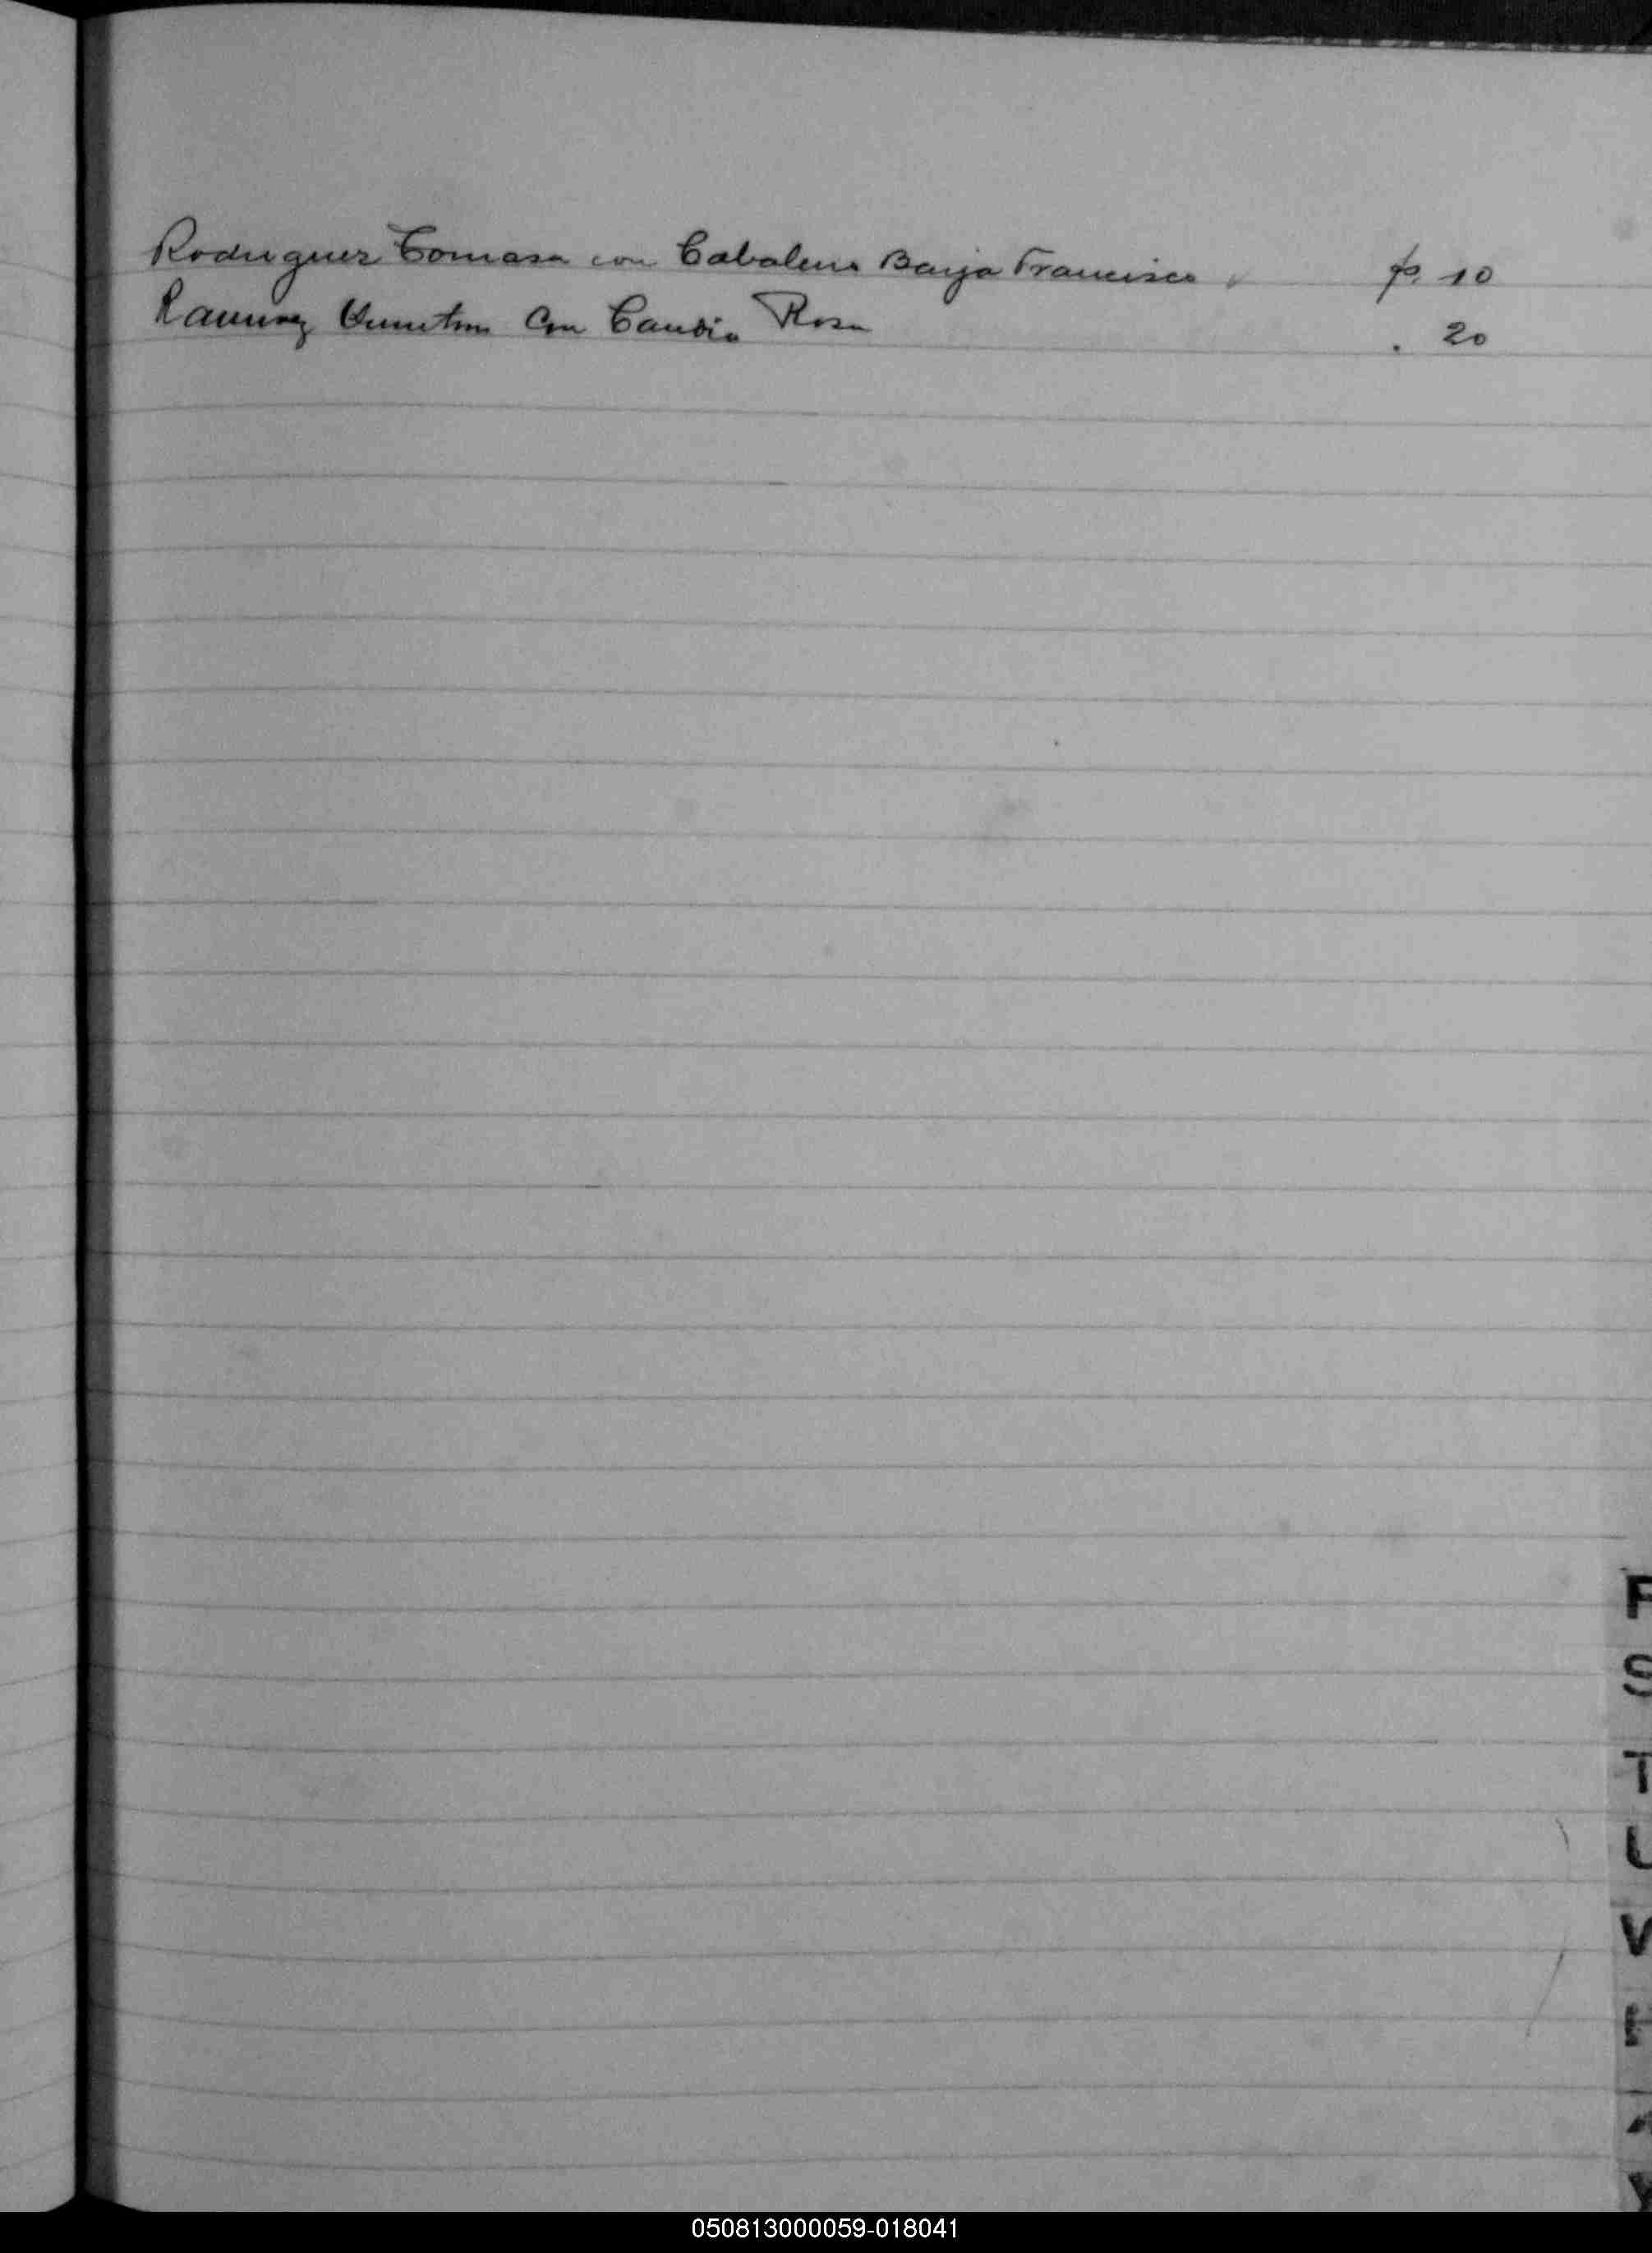 Rodriguez Tomasa con Cabalero Bayja Francisco p. 10
Ramirez con Candia Rosa . 20
S
T
U
V
050813000059-018041